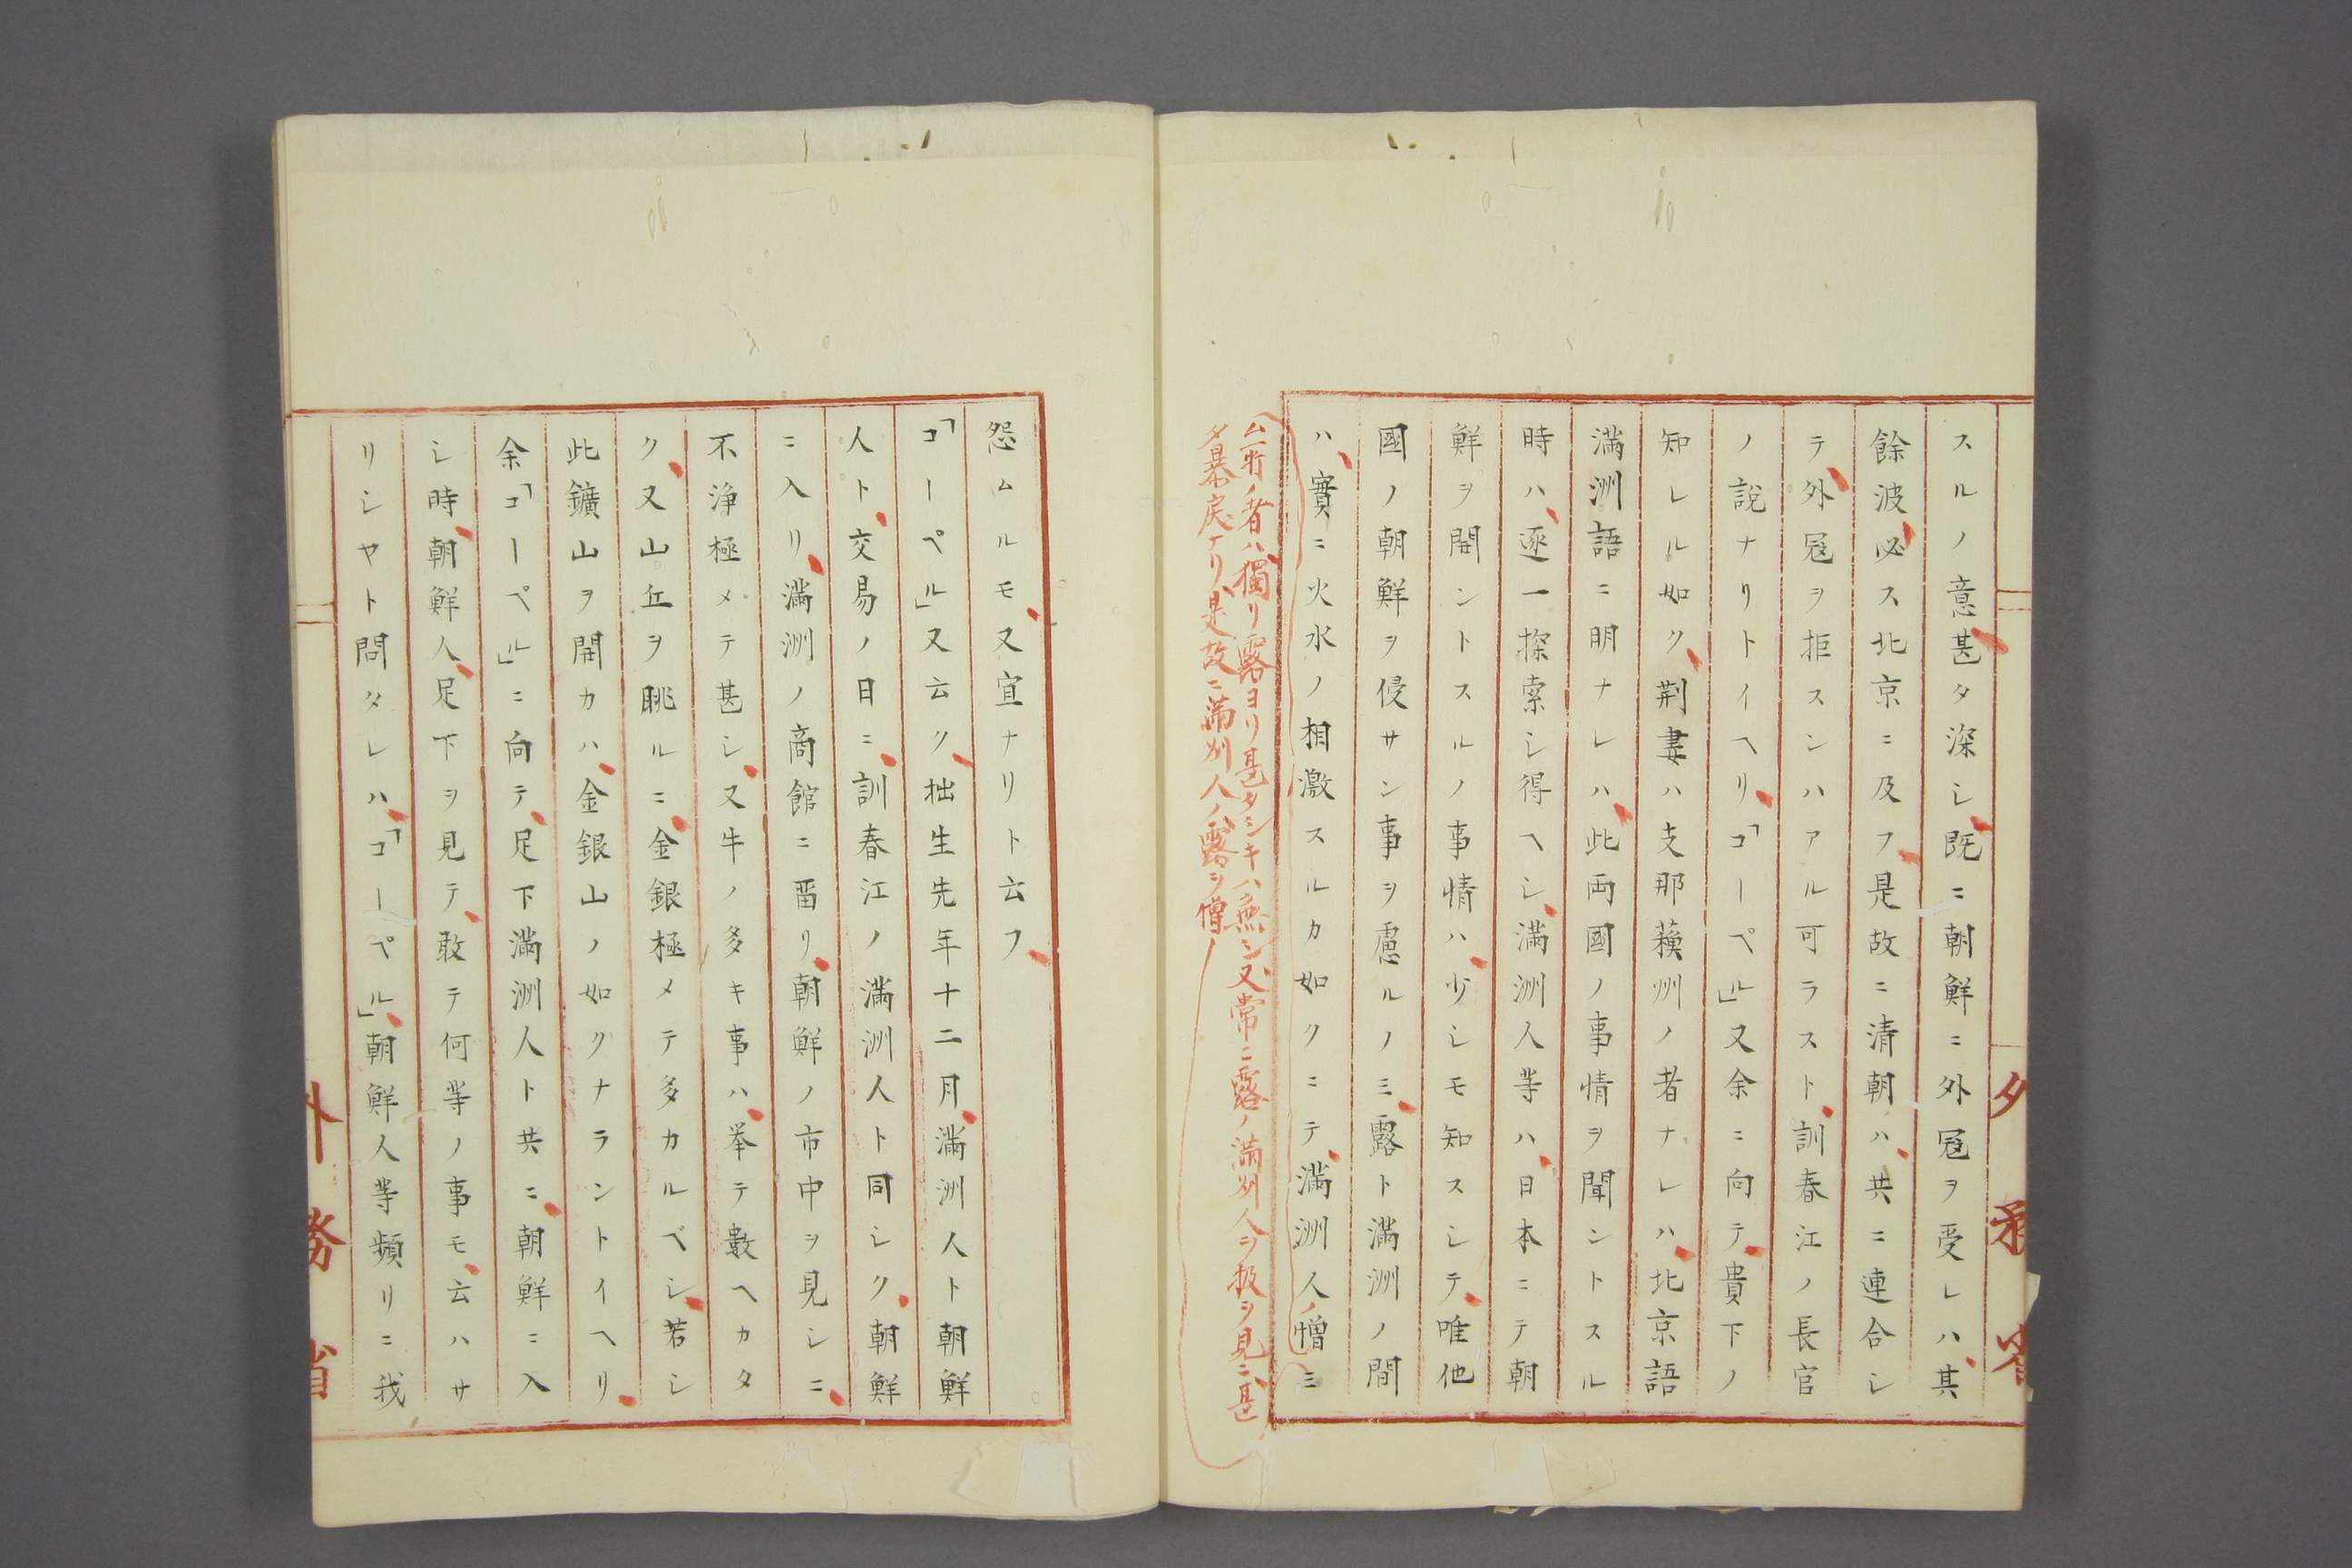 スルノ意甚タ深シ既ニ朝鮮ニ外冦ヲ受レハ其
餘波必ス北京ニ及フ是故ニ清朝ハ共ニ連合シ
テ外冦ヲ拒スンハアル可ラスト訓春江ノ長官
ノ說ナリトイヘリ「コーペル」又余ニ向テ貴下ノ
知レル如ク荆妻ハ支那蘓洲ノ者ナレハ北京語
満洲語ニ明ナレハ此両國ノ事情ヲ聞ントスル
時ハ逐一探索シ得ヘシ満洲人等ハ日本ニテ朝
鮮ヲ開ントスルノ事情ハ少シモ知スシテ唯他
國ノ朝鮮ヲ侵サン事ヲ慮ルノミ露ト満洲ノ間
ハ實ニ火水ノ相激スルカ如クニテ満洲人ノ憎ミ
ム所ノ者ハ獨リ露ヨリ甚タシキハ無シ又常ニ露ノ満州人ヲ扱ヲ見ニ甚
タ暴戻ナリ是故ニ満州人ノ露ヲ憎
外務省
怨ムルモ又宜ナリト云フ
「コーペル」又云ク拙生先年十二月満洲人ト朝鮮
人ト交易ノ日ニ訓春江ノ満洲人ト同シク朝鮮
ニ入リ満洲ノ商館ニ畱リ朝鮮ノ市中ヲ見シニ
不浄極メテ甚シ又牛ノ多キ事ハ挙テ數ヘカタ
ク又山丘ヲ眺ルニ金銀極メテ多カルベシ若シ
此鑛山ヲ開カハ金銀山ノ如クナラントイヘリ
余「コーペル」ニ向テ足下満洲人ト共ニ朝鮮ニ入
シ時朝鮮人足下ヲ見テ敢テ何等ノ事モ云ハサ
リシヤト問タレハ「コーペル」朝鮮人等頻リニ我
外務省